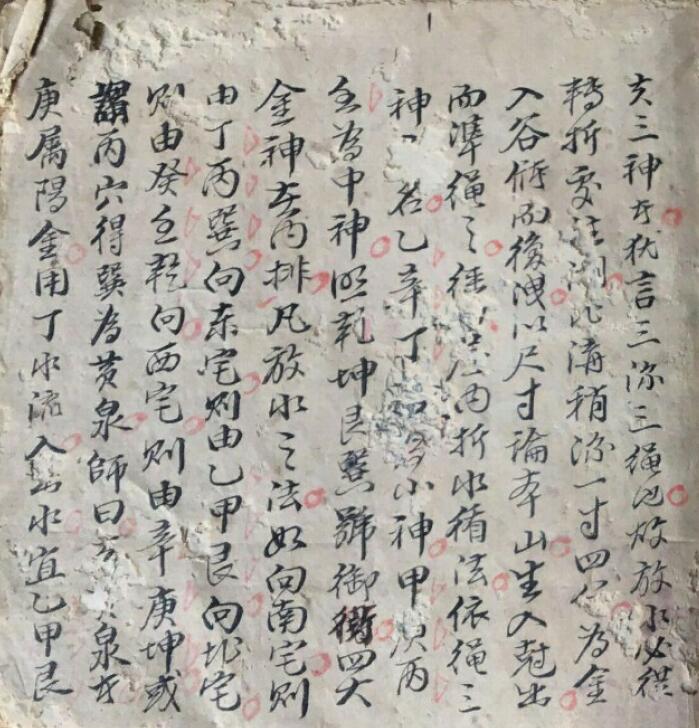 亥三神者犹言三深三绳也故放水必從
轉折處注溝此溝稍深一寸四分為金
入谷俯而後洩以尺寸論本山生入尅出
而準绳之 两折水積法依绳三
神 名乙辛丁 小神甲庚丙
壬為中神照乾坤艮巽號御街四大
金神在内排凡放水之法如向南宅則
由丁丙巽向东宅则由乙甲艮向北宅
则由癸壬乾向西宅则由辛庚坤或
謂丙穴得巽為黄泉師曰 泉者
庚属陽金用丁水流入 水宜乙甲艮